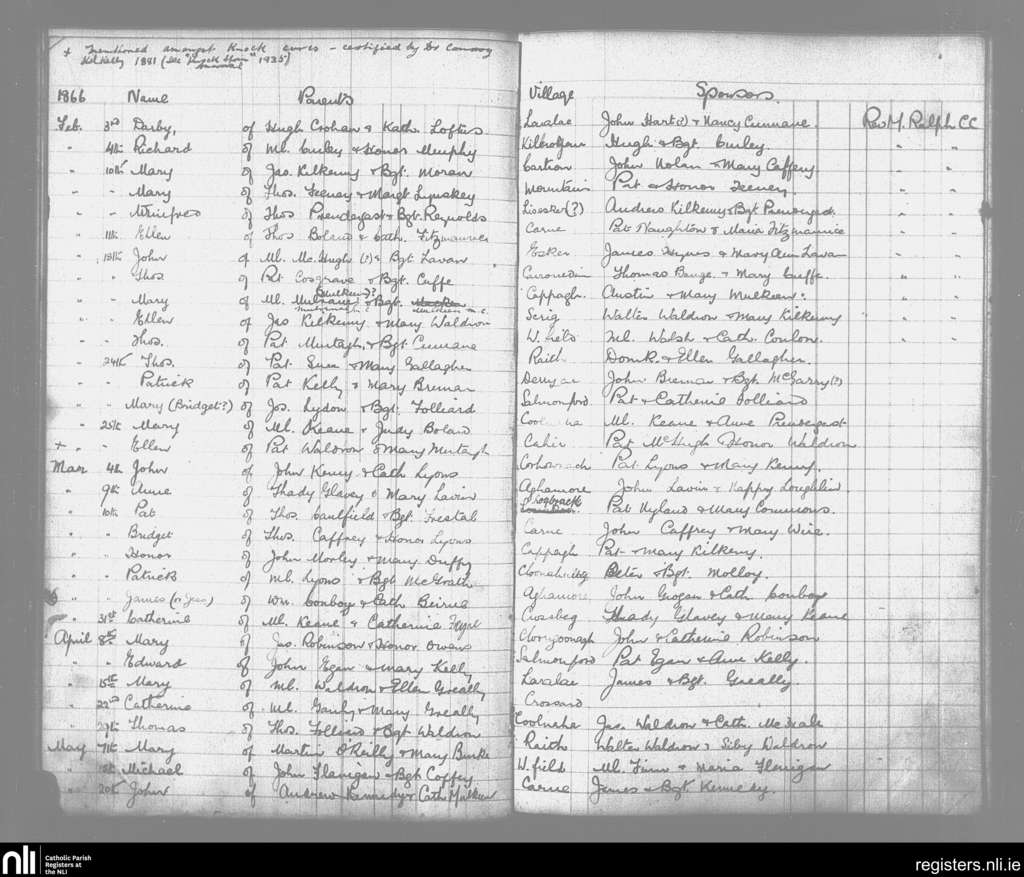 + Mentioned amongst Knock cures - certified by Dr Conway
Kilkelly 1881 (See "Knock Shrine Annual" 1935)
1866 Name Parents Village Sponsors
Feb. 3rd Darby, of Hugh Crohan & Kath. Loftus Laralae John Hart(?) & Nancy Cunnane. Rev M. Ralph CC
" 4th Richard of Ml. Curley & Honor Murphy Hugh & Bgt Curley. " "
" 10th Mary of Jas. Kilkenny & Bgt. Moran Cartron John Nolan & Mary Caffery " "
" " Mary of Thos. Feeney & Margt Lynskey Mountain Pat & Honor Feeney. " "
" " Winifred of Thos Prendergast & Bgt. Reynolds (?) Andrew Kilkenny & Bgt. " "
" 11th Ellen of Thos Boland & Cath. Fitzmaurice Carne Pat Naughton & Maria Fitzmaurice " "
" 18th John of Ml. Mc.Hugh (?) & Bgt Lavan Esker James Hynes & Mary Ann Lavan " "
" " Thos of Pat Cosgrave & Bgt. Cuffe Thomas & Mary Cuffe " "
" " Mary of Ml. (Mulkeen)? & Bgt. Cappagh. Austin & Mary Mulkeen. " "
" " Ellen of Jas Kilkenny & Mary Waldron Walter Waldron & Mary Kilkenny " "
" " Thos. of Pat Murtagh & Bgt Cunnane Ml. Walsh & Cath. Conlon. " "
" 24th Thos. of Pat. & Mary Gallagher Raith Domk. & Ellen Gallagher.
" " Patrick of Pat Kelly & Mary Brennan John Brennan & Bgt. McGarry(?)
" " Mary (Bridget?) of Jos. Lydon & Bgt. Folliard Salmonford Pat & Catherine Folliard
" 25th Mary of Ml. Keane & Judy Boland Ml. Keane & Anne Prendergast
+ " Ellen of Pat Waldron & Mary Murtagh Cahir Pat McHugh & Honor Waldron
Mar 4th John of John Kenny & Cath Lyons Pat Lyons & Mary Kenny.
" 9th Anne of Thady Glavey & Mary Lavin Aghamore John Lavin & Nappy Loughlin
" 10th Pat of Thos. Caulfield & Bgt. Pat Hyland & Mary Commons.
" " Bridget of Thos. Caffrey & Honor Lyons Carne John Caffrey & Mary
" " Honor of John Morley & Mary Duffy Cappagh Pat & Mary Kilkenny.
" " Patrick of Ml. Lyons & Bgt McGrath Peter & Bgt. Molloy.
" " James (or Jean) of Wm. Conboy & Cath Beirne Aghamore John Grogan & Cath. Conboy
" 31st Catherine of Ml. Keane & Catherine Crossbeg Thady Glavey & Mary Keane
April 8th Mary of Jas. Robinson & Honor Owens John & Catherine Robinson
" " Edward of John Egan & Mary Kelly Salmonford Pat Egan & Anne Kelly.
" 15th Mary of Ml. Waldron & Ellen Greally Laralae James & Bgt. Greally
" 22nd Catherine of Ml. & Mary Greally Crossard
" 29th Thomas of Thos. Folliard & Bgt Waldron Coolnaha Jas. Waldron & Cath. McHale
May 7th Mary of Martin O'Reilly & Mary Burke Raith Walter Waldron & Siby Waldron
" Michael of John Flanigan & Bgt Coffey W. field Ml. Finn & Maria Flanigan
" 20th John of Andrew Kennedy & Cath Mulkeen Carne James & Bgt Kennedy.
nli Catholic Parish Registers at the NLI registers.nli.ie